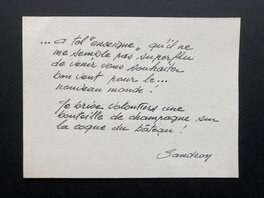 ...a tel "enseigne" qu'il ne
me semble pas superflu
de venir vous souhaiter
bon vent pour le...
nouveau monde !
Je brise volontiers une
bouteille de champagne sur
la coque du bâteau !
Sandron